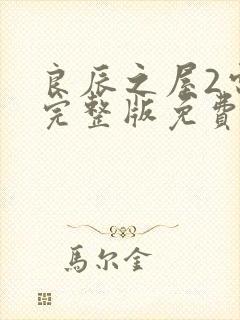 良辰之屋2
完整版免費
馬尔金